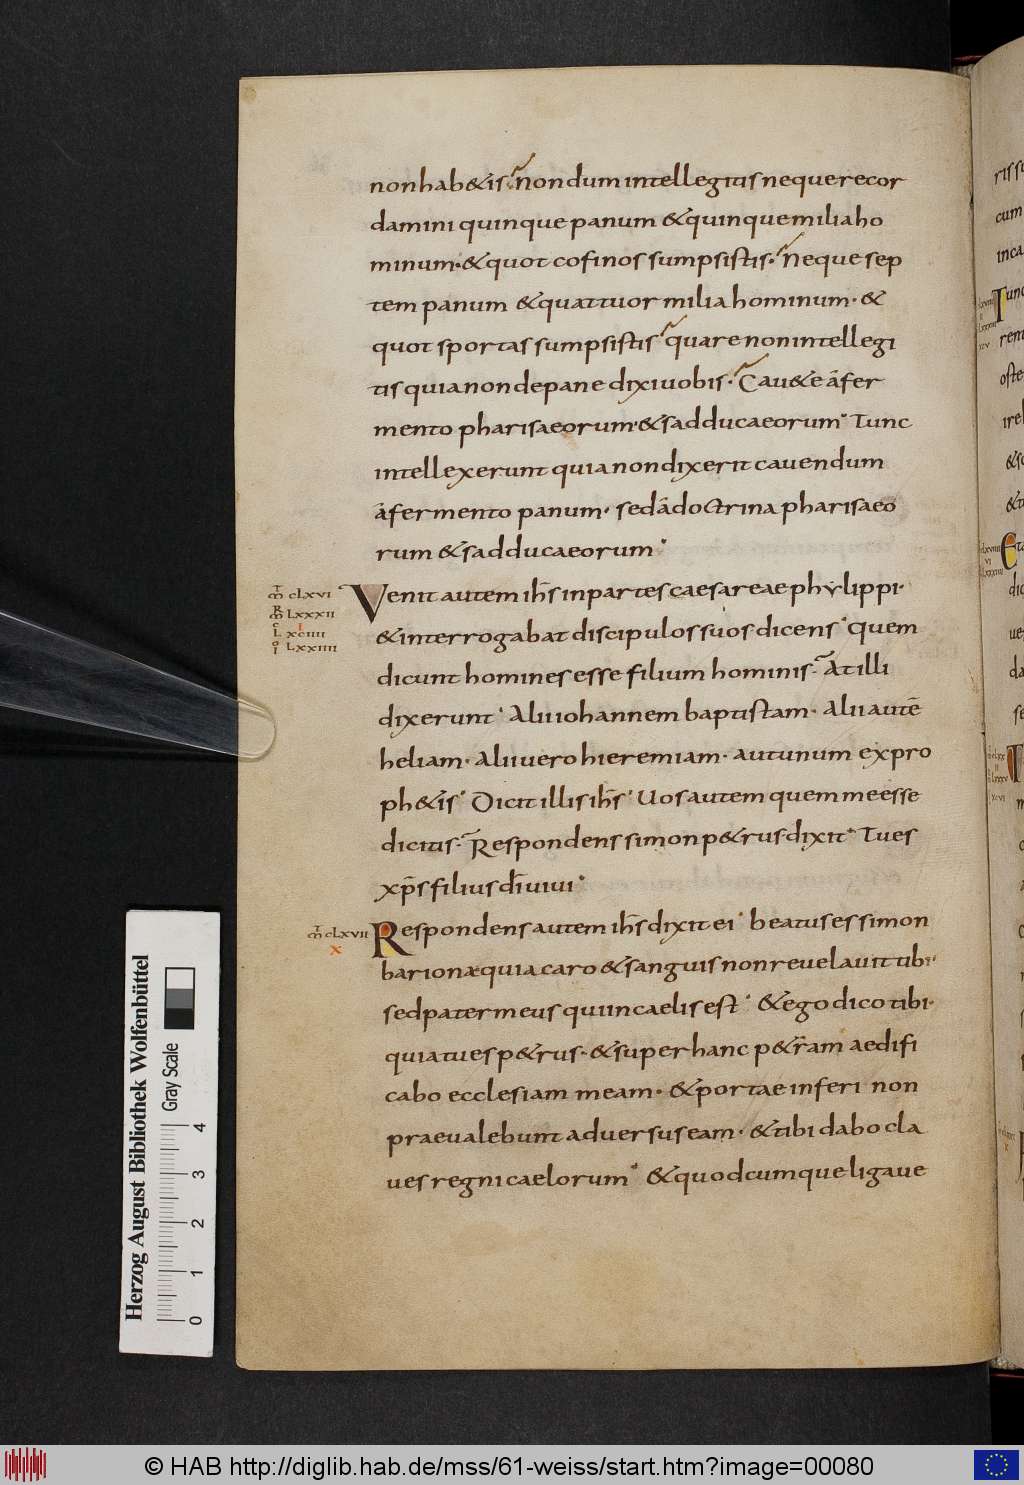 nonhab&is. nondum intellegitis neque recor
damini quinque panum & quinque milia ho
minum. & quot cofinos sumpsistis. Neque sep
tem panum & quattuor milia hominum. &
quot sportas sumpsistis quare non intellegi
tis quia non de pane dixi uobis. Cau&e áfer
mento pharisaeorum & sadducaeorum. Tunc
intellexerunt quia non dixerit cauendum
áfermento panum. sed ádoctrina pharisaeo
rum & sadducaeorum.
Venit autem ih̅s in partes caesareae phylippi.
& interrogabat discipulos suos dicens. quem
dicunt homines esse filium hominis. At illi
dixerunt. Alii iohannem baptistam. alii autē
heliam. alii uero hieremiam. aut unum ex pro
ph&is. Dicit illis ih̅s. Uos autem quem me esse
dicitis. Respondens simon p&rus dixit. Tu es
xp̅s filius dī uiui.
Respondens autem ih̅s dixit ei. beatus es simon
bar iona quia caro & sanguis non reuelauit tibi
sed pater meus qui in caelis est. & ego dico tibi.
quia tu es p&rus. & super hanc p&ram aedifi
cabo ecclesiam meam. & portae inferi non
praeualebunt aduersus eam. & tibi dabo cla
ues regni caelorum. & quodcumque ligaue
CLXVI
LXXXII
I
L XCIIII
LXXIIII
CLXVII
X
Herzog August Bibliothek Wolfenbüttel
Gray Scale
0 1 2 3 4
© HAB http://diglib.hab.de/mss/61-weiss/start.htm?image=00080